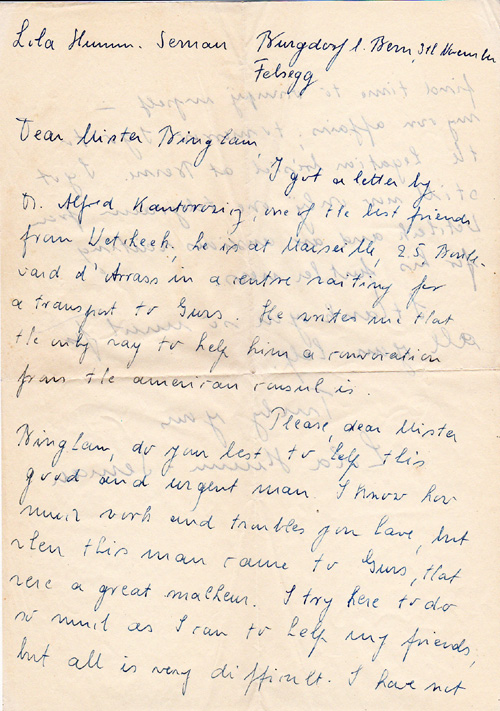 Lola Humm. Sernau Burgdorf b. Bern, 3d November
Felsegg
Dear Mister Bingham,
I got a letter by
Dr. Alfred Kantorowicz, one of the best friends
from Wetcheek, he is at Marseille, 25 Boule-
vard d'Arrass in a centre waiting for
a transport to Gurs. He writes me that
the only way to help him a convocation
from the american consul is.
Please, dear Mister
Bingham, do your best to help this
good and urgent man. I know how
much work and troubles you have, but
when this man came to Gurs, that
were a great malheur. I try here to do
so much as I can to help my friends,
but all is very difficult. I have not